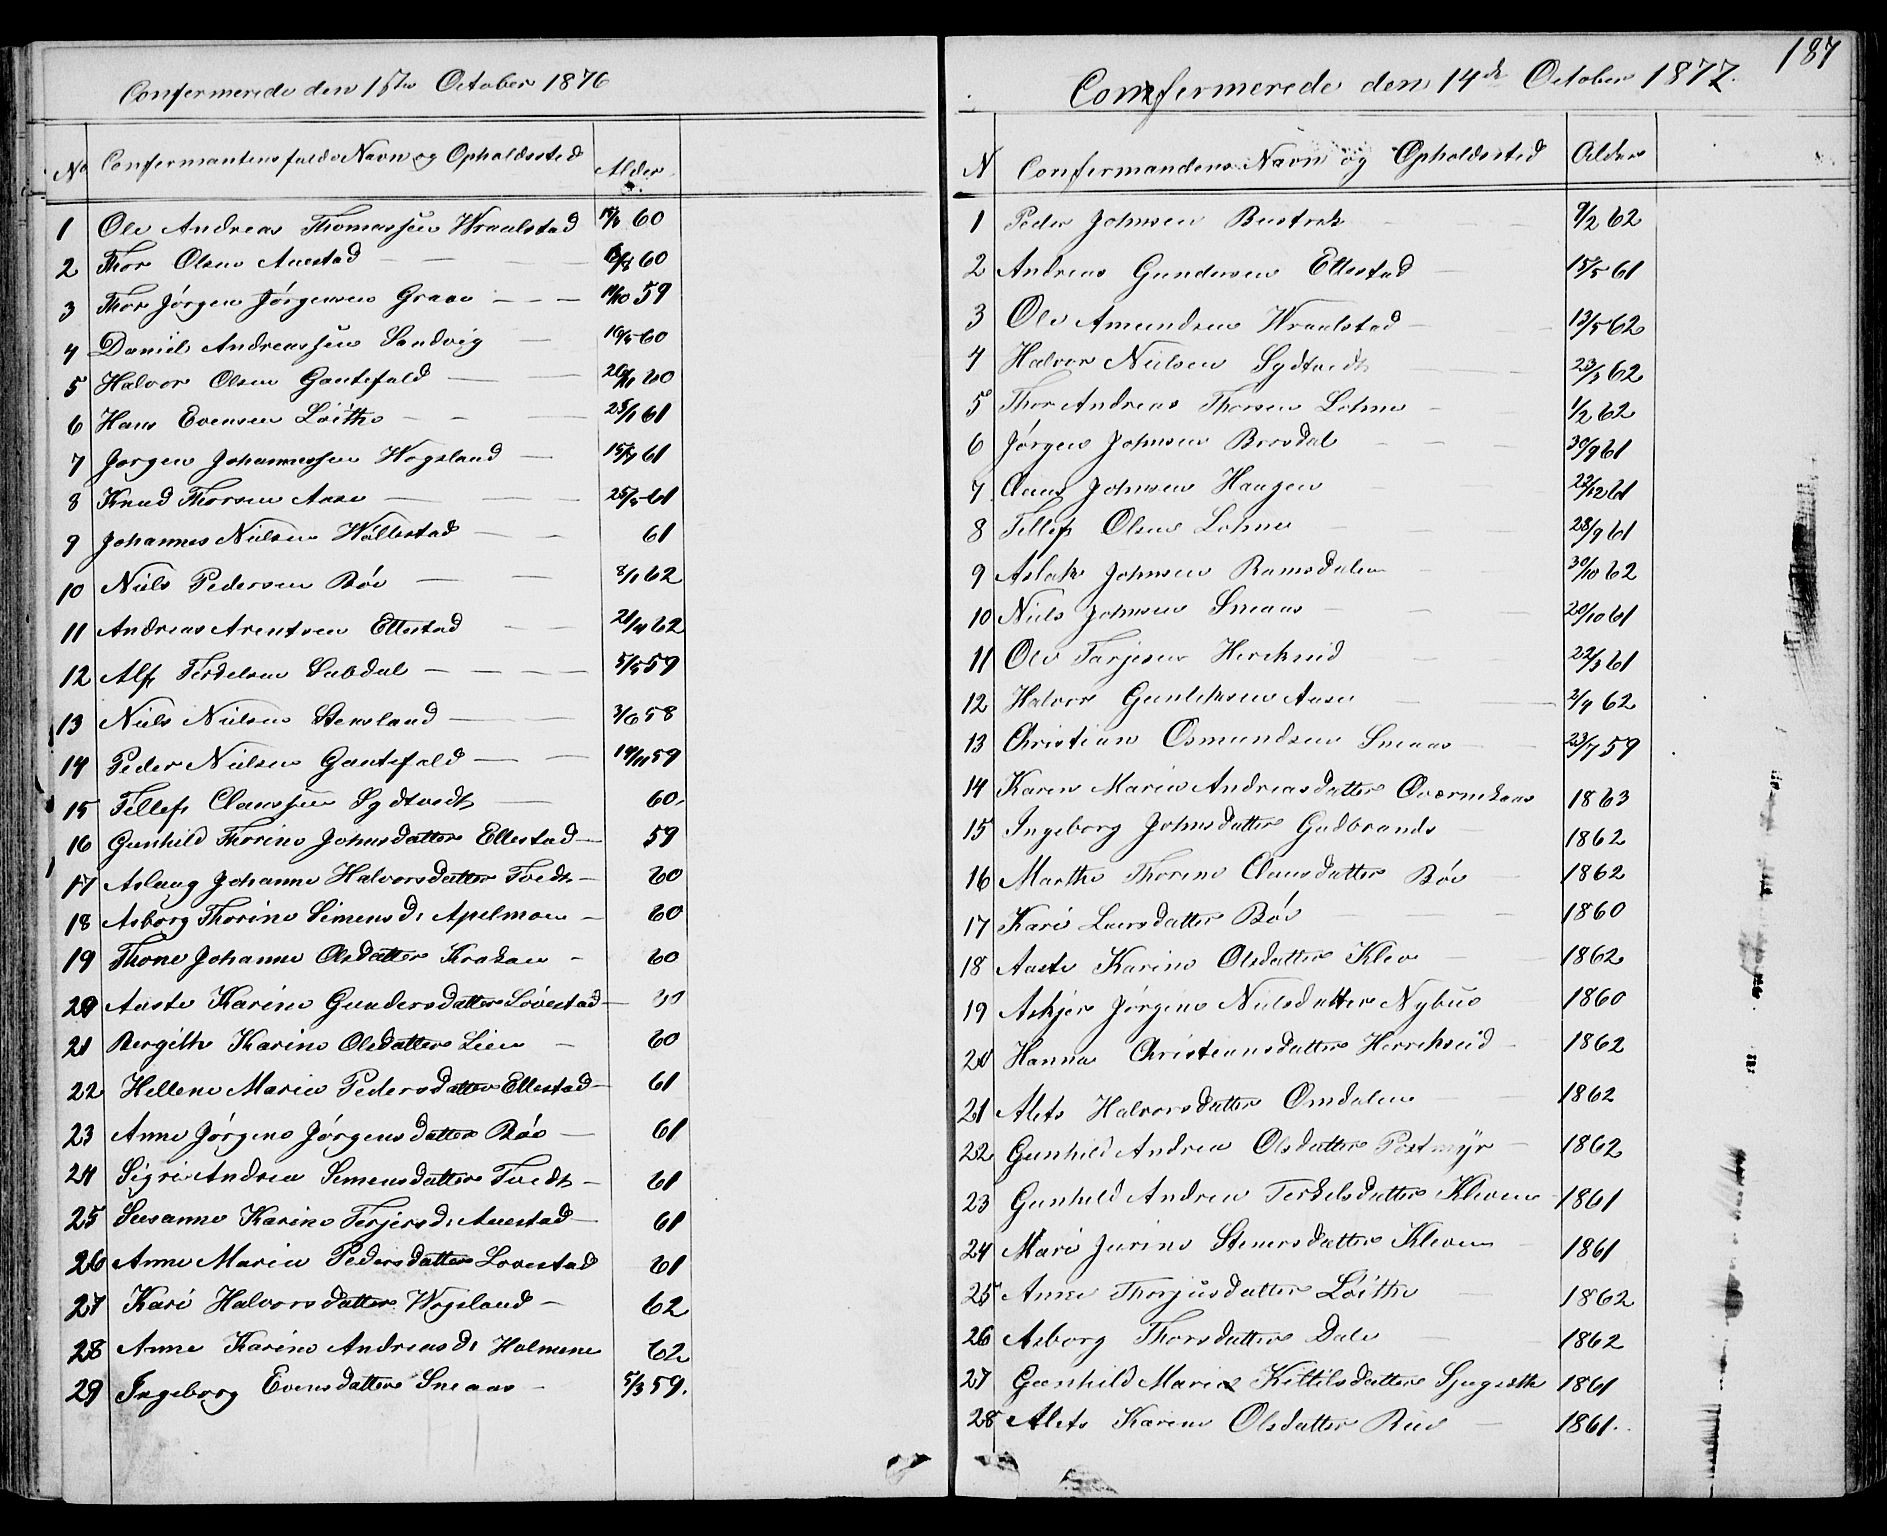 Confermerede den 15de October 1876
No Confermantens fulde Navn og Opholdssted Alder
1 Ole Andreas Thomassen Wraalstad 60
2 Thor Olsen Auestad 60
3 Thor Jørgen Jørgensen Graae 59
4 Daniel Andreassen Sandvig 60
5 Halvor Olsen Gautefald 60
6 Hans Evensen Løithe 25/1 61
7 Jørgen Johannessen Wogsland 61
8 Knud Thorsen Aase 61
9 Johannes Nielsen Wållestad 61
10 Niels Pedersen Bøe 8/1 62
11 Andreas Arentsen Ellestad 62
12 Alf Terkelsen Aabdal 5/5 59
13 Niels Nielsen Stensland 3/6 58
14 Peder Nielsen Gautefald 14/11 59
15 Tellef Claussen Sydtvedt 60.
16 Gunhild Thorine Johnsdatter Ellestad 59
17 Aslaug Johanne Halvorsdatter Tvedt 60
18 Asborg Thorine Simens d. Apelmoen 60
19 Thone Johanne Olsdatter Krokaae 60
20 Aaste Karine Gundersdatter Lovestad
21 Bergithe Karine Olsdatter Lien 60
22 Hellene Marie Pedersdatter Ellestad 61
23 Anne Jørgine Jørgensdatter Bøe 61
24 Sigri Andrea Simensdatter Tvedt 61
25 Susanne Karine Terjers d. Auestad 61
26 Anne Marie Pedersdatter Lovestad 61
27 Kari Halvorsdatter Wogsland 62
28 Anne Karine Andreas d. Holmene 62
29 Ingeborg Evensdatter Smaas 5/3 59.
187
Comfermerede den 14de October 1877.
N Confermandens Navn og Opholdssted Alder
1 Peder Johnsen Bustrak 9/2 62
2 Andreas Gundersen Ellestad 15/5 61
3 Ole Amundsen Wraalstad 13/5 62
4 Halvor Nielsen Sydtvedt 23/3 62
5 Thor Andreas Thorsen Lohne 1/2 62
6 Jørgen Johnsen Birsdal 30/9 61
7 Claus Johnsen Haugen 22/12 61
8 Tellef Olsen Lohne 28/9 61
9 Aslak Johnsen Ramsdalen 30/10 62
10 Niels Johnsen Smaas 20/10 61
11 Ole Tarjesen Herekseid 22/3 61
12 Halvor Gunleksen Aase 2/4 62
13 Christian Osmundsen Smaas 23/7 59
14 Karen Marie Andreasdatter Qværnekaas 1863
15 Ingeborg Johnsdatter Gudbrands 1862
16 Marthe Thorine Clausdatter Bøe 1862
17 Kari Larsdatter Bøe 1860
18 Aaste Karine Olsdatter Kleve 1862
19 Askjer Jørgine Nielsdatter Nybue 1860
20 Hanna Christiansdatter Herrekseid 1862
21 Alets Halvorsdatter Omdalen 1862
22 Gunhild Andrea Olsdatter Postmyr 1862
23 Gunhild Andrea Terkelsdatter Kleven 1861
24 Mari Jurine Stenersdatter Kleven 1861
25 Anne Thorjusdatter Løithe 1862
26 Asborg Thorsdatter Dale 1862
27 Gunhild Marie Kittilsdatter 1861
28 Alets Karine Olsdatter Rue 1861.